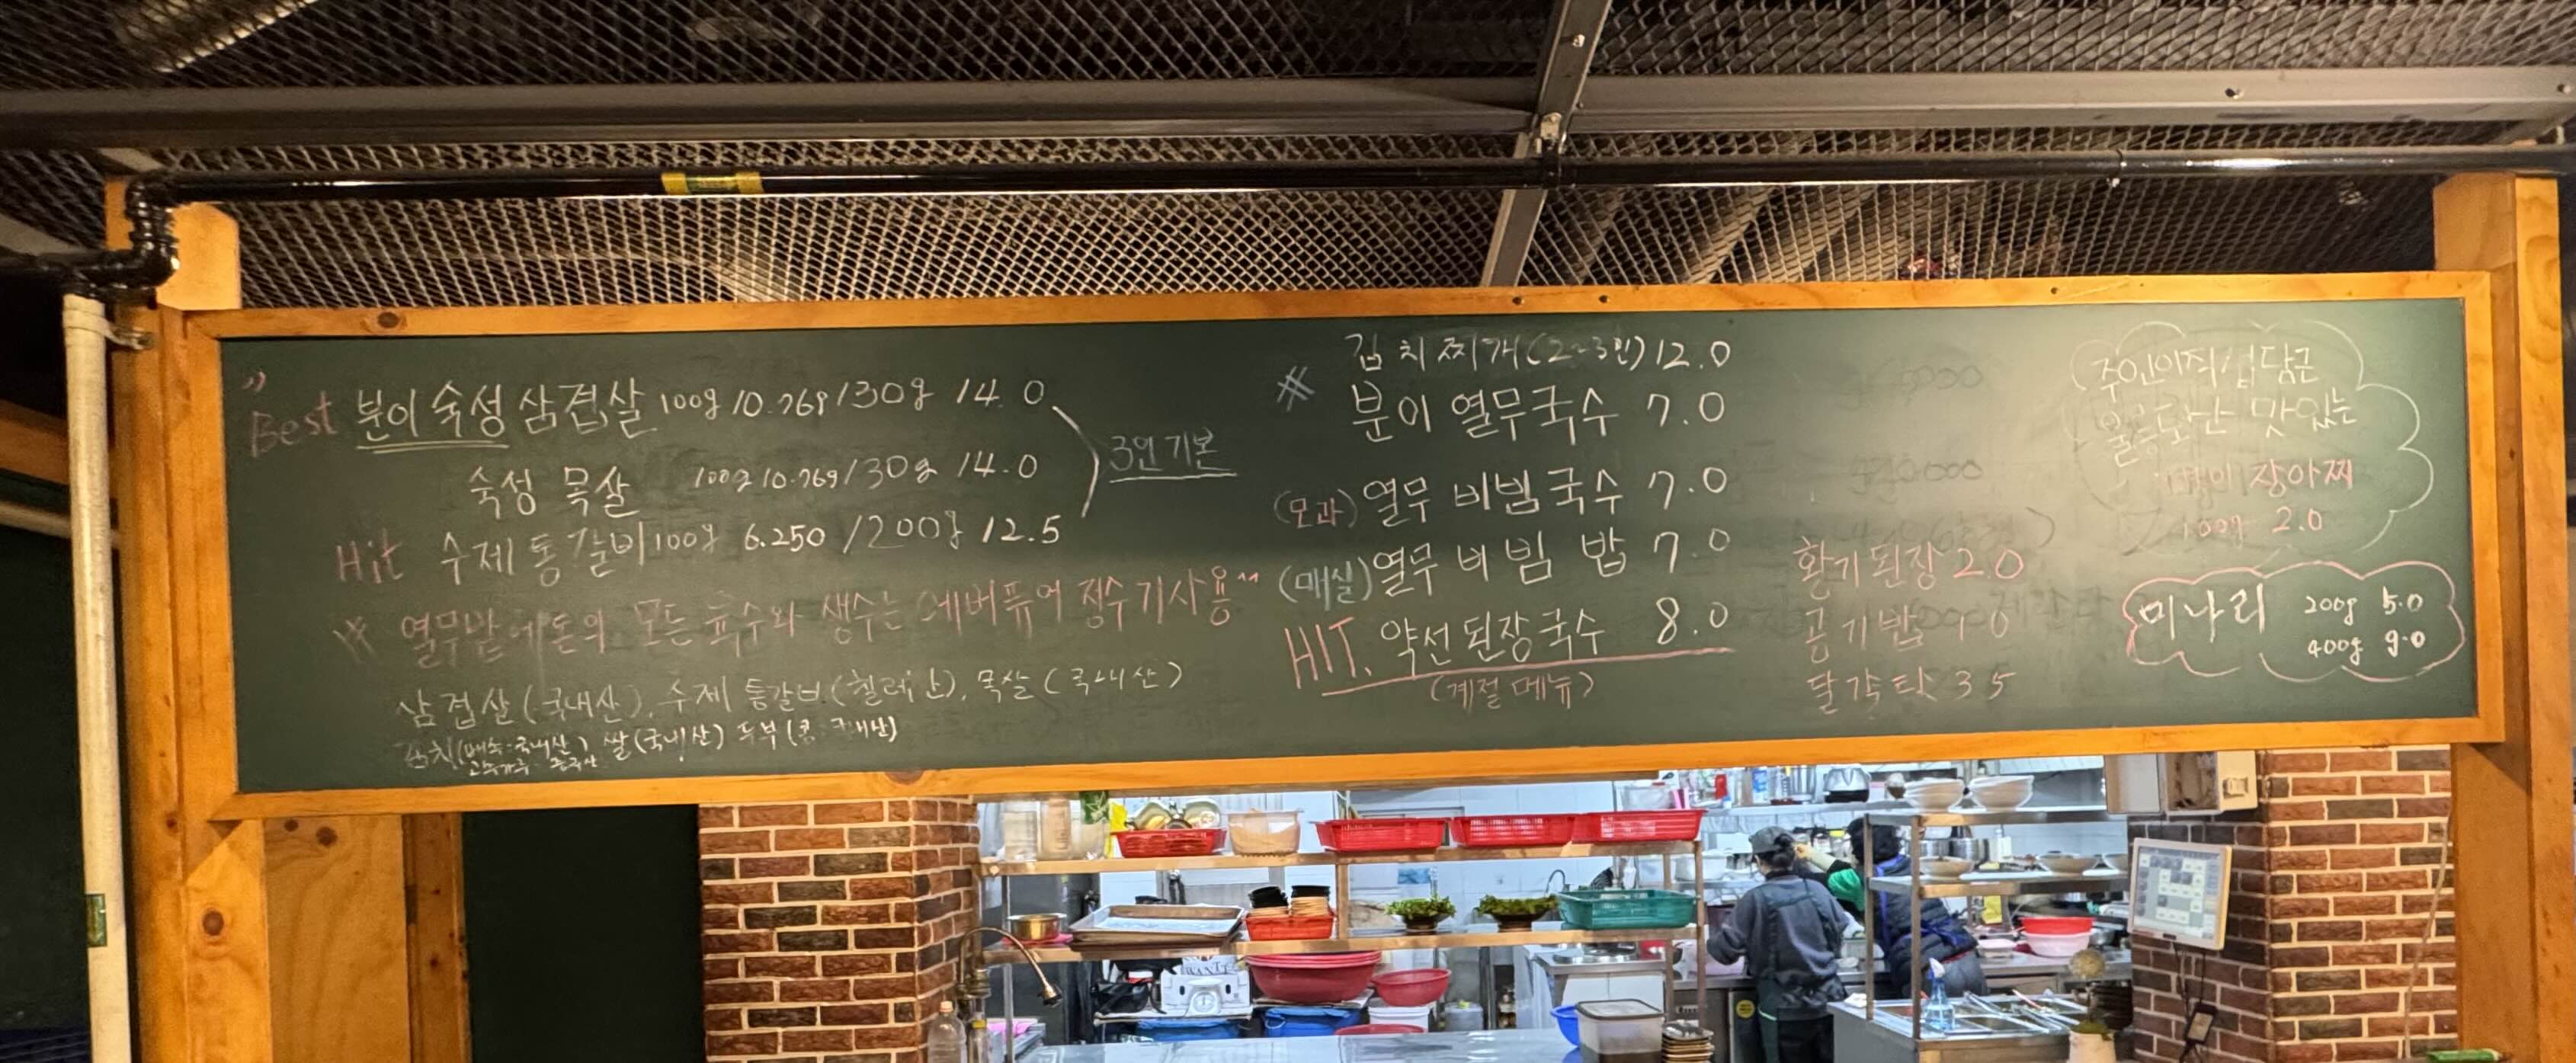 Best 분이숙성 삼겹살 100g 10.769/130g 14.0
숙성 목살 100g 10.769/130g 14.0
Hit 수제통갈비 100g 6.250/200g 12.5
3인기본
※ 열무밭에돈의 모든 육수와 생수는 에버퓨어 정수기사용"
삼겹살(국내산), 수제통갈비(칠레산), 목살(국내산)
김치(배추:국내산) 쌀(국내산) 두부(콩:국내산)
고추가루 중국산
김치찌개(2~3인) 12.0
※ 분이 열무국수 7.0
(모과) 열무 비빔국수 7.0
(매실) 열무 비빔 밥 7.0
HIT. 약선된장국수 8.0
(계절메뉴)
황기된장 2.0
공기밥 1.0
달걀탕 3.5
주인이직접담근
울릉도산 맛있는
명이 장아찌
100g 2.0
미나리 200g 5.0
400g 9.0